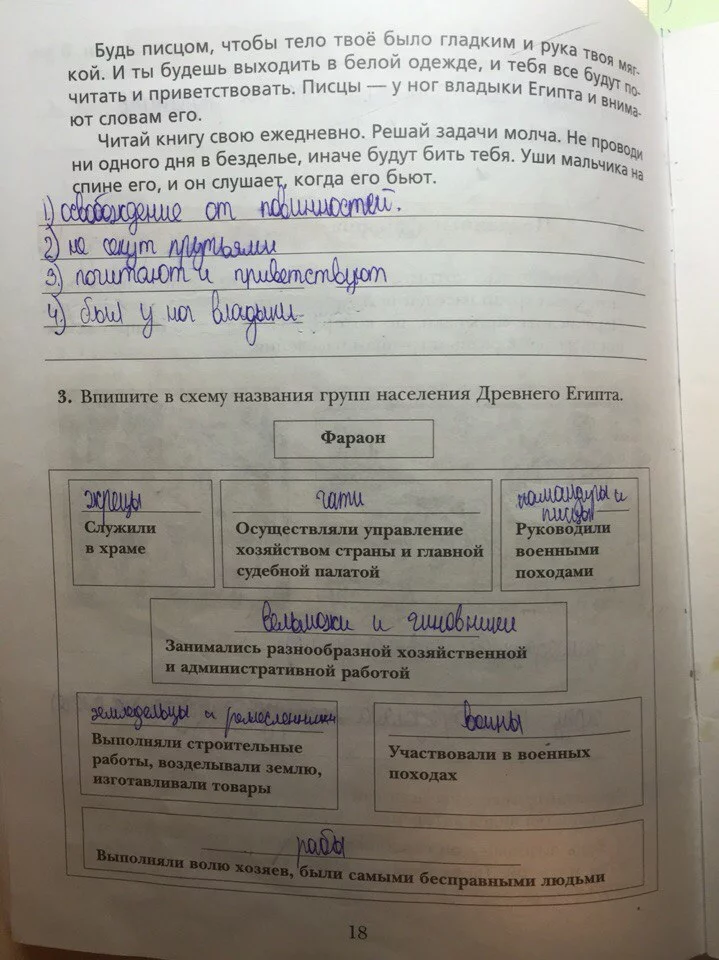 Будь писцом, чтобы тело твоё было гладким и рука твоя мяг-
кой. И ты будешь выходить в белой одежде, и тебя все будут по-
читать и приветствовать. Писцы — у ног владыки Египта и внима-
ют словам его.
Читай книгу свою ежедневно. Решай задачи молча. Не проводи
ни одного дня в безделье, иначе будут бить тебя. Уши мальчика на
спине его, и он слушает, когда его бьют.
1) освобождение от повинностей.
2) не секут прутьями
3) почитают и приветствуют
4) был у ног владыки
3. Впишите в схему названия групп населения Древнего Египта.
Фараон
жрецы
Служили
в храме
чати
Осуществляли управление
хозяйством страны и главной
судебной палатой
командиры и
писцы
Руководили
военными
походами
вельможи и чиновники
Занимались разнообразной хозяйственной
и административной работой
земледельцы и ремесленники
Выполняли строительные
работы, возделывали землю,
изготавливали товары
воины
Участвовали в военных
походах
рабы
Выполняли волю хозяев, были самыми бесправными людьми
18